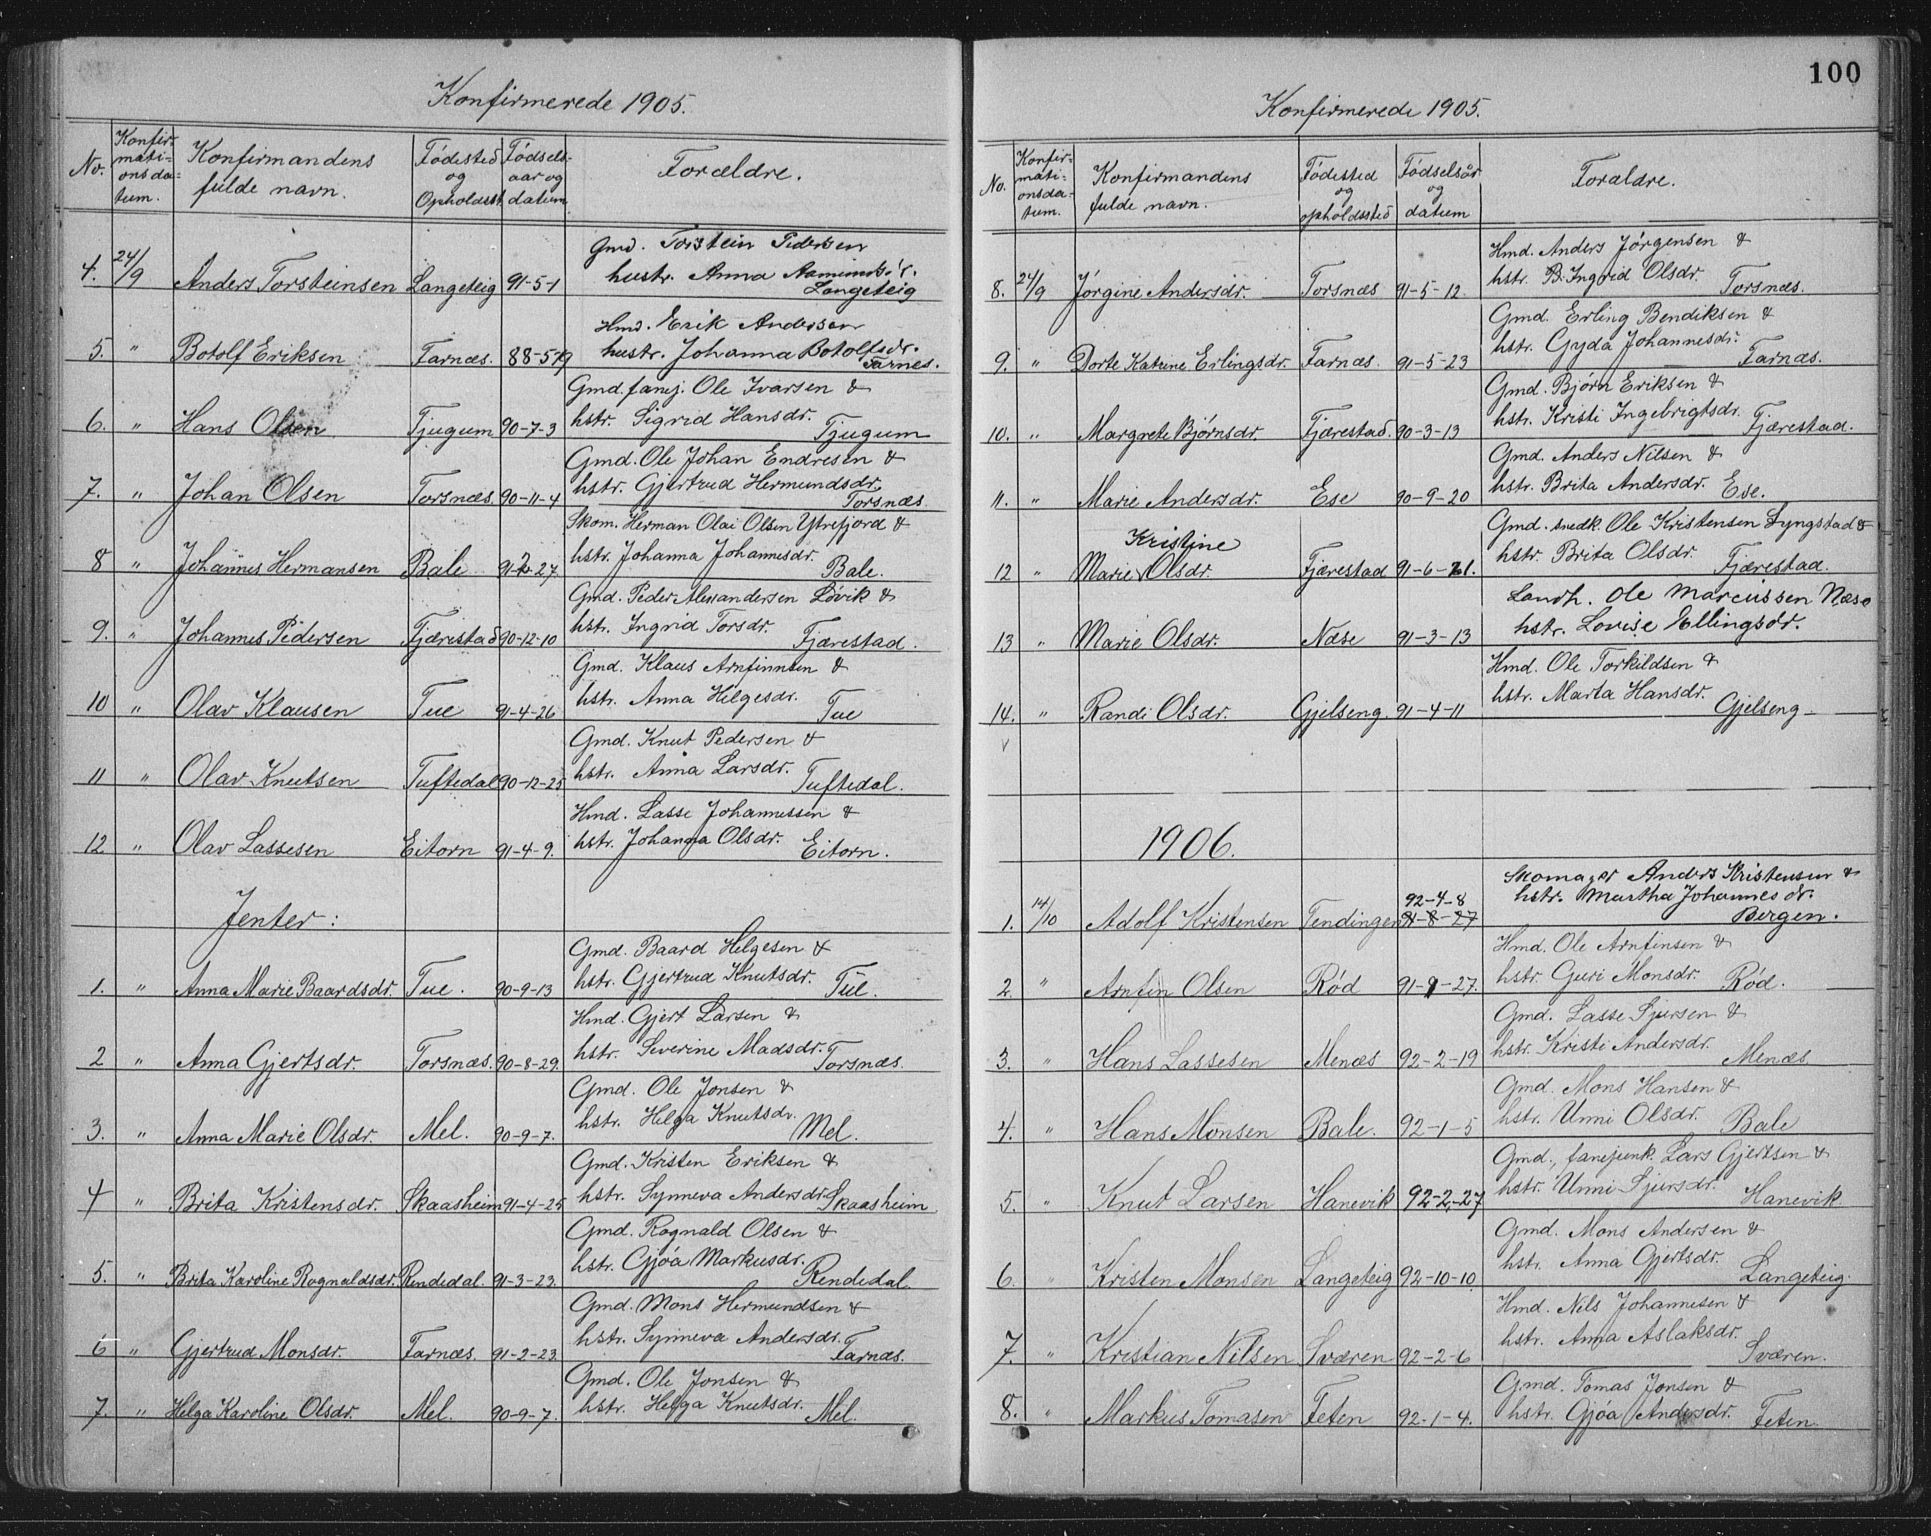 Konfirmerede 1905.
No. Konfirmationsdatum. Konfirmandens fulde navn. Fødested og Opholdsst. Fødselsaar og datum Forældre.
Gmd. Torstein Pedersen
4. 24/9 Anders Torsteinsen Langeteig 91-5-1 hustr. Anna
Langeteig
Hmd. Erik Andersen
5. " Botolf Eriksen Farnæs. 88-5-19 hustr. Johanna Botolfsdr.
Farnes.
Gmd. fanej. Ole Ivarsen &
6. " Hans Olsen Tjugum 90-7-3 hstr. Sigrid Hansdr. Tjugum
Gmd. Ole Johan Endresen &
7. " Johan Olsen Torsnæs 90-11-4 hstr. Gjertrud Hermundsdr. Torsnæs.
Skom. Herman Olai Olsen Ytrefjord &
8 " Johannes Hermansen Bale 91-2-27. hstr. Johanna Johannesdr. Bale.
Gmd. Peder Alexandersen Løvik &
9. " Johannes Pedersen Fjærestad 90-12-10 hstr. Ingrid Torsdr. Fjærestad.
Gmd. Klaus Arnfinnsen &
10 " Olav Klausen Tue 91-4-26 hstr. Anna Helgesdr. Tue
Gmd. Knut Pedersen &
11 " Olav Knutsen Tuftedal 90-12-25 hstr. Anna Larsdr. Tuftedal.
Hmd. Lasse Johannessen &
12 " Olav Lassesen Eitorn 91-4-9. hstr. Johanna Olsdr. Eitorn.
Jenter:
Gmd. Baard Helgesen &
1. " Anna Marie Baardsdr. Tue. 90-9-13 hstr. Gjertrud Knutsdr. Tue.
Hmd. Gjert Larsen &
2 " Anna Gjertsdr. Torsnæs. 90-8-29. hstr. Severine Madsdr. Torsnæs.
Gmd. Ole Jonsen &
3. " Anna Marie Olsdr. Mel. 90-9-7. hstr. Helga Knutsdr. Mel.
Gmd. Kristen Eriksen &
4 " Brita Kristensdr. Skaasheim 91-4-25 hstr. Synneva Andersdr. Skaasheim.
Gmd. Rognald Olsen &
5. " Brita Karoline Rognaldsdr. Rendedal. 91-3-23. hstr. Gjøa Markusdr. Rendedal.
Gmd. Mons Hermundsen &
6 " Gjertrud Monsdr. Farnæs. 91-2-23. hstr. Synneva Andersdr. Farnæs.
Gmd. Ole Jonsen &
7. " Helga Karoline Olsdr. Mel. 90-9-7. hstr. Helga Knutsdr. Mel.
100
Konfirmerede 1905.
No. Konfirmationsdatum. Konfirmandens fulde navn. Fødested og opholdssted Fødselsår og datum Forældre.
Hmd. Anders Jørgensen &
8. 24/9 Jørgine Andersdr. Torsnæs 91-5-12. hstr. B. Ingrid Olsdr. Torsnæs.
Gmd. Erling Bendiksen &
9. " Dorte Katrine Erlingsdr. Farnæs. 91-5-23 hstr. Gyda Johannesdr. Farnæs.
Gmd. Bjørn Eriksen &
10. " Margrete Bjørnsdr. Fjærestad. 90-3-13 hstr. Kristi Ingebrigtsdr. Fjærestad.
Gmd. Anders Nilsen &
11. " Marie Andersdr. Ese 90-9-20 hstr. Brita Andersdr. Ese.
Gmd. snedk. Ole Kristensen Lyngstad &
Kristine
12 " Marie Olsdr. Fjærestad 91-6-21. hstr. Brita Olsdr. Fjærestad.
Landh. Ole Marcussen Næse
13 " Marie Olsdr. Næse 91-3-13 hstr. Lovise Ellingsdr.
Hmd. Ole Torkildsen &
14. " Randi Olsdr. Gjelseng. 91-4-11 hstr. Marta Hansdr. Gjelseng
1906.
Skomager Anders Kristensen &
92-4-8 hstr. Martha Johannesdr.
1. 14/10 Adolf Kristensen Tendingen 91-8-27 Bergen.
Hmd. Ole Arnfinsen &
2. " Arnfin Olsen Rød 91-9-27. hstr. Guri Monsdr. Rød.
Gmd. Lasse Sjursen &
3. " Hans Lassesen Menæs 92-2-19 hstr. Kristi Andersdr. Menæs
Gmd. Mons Hansen &
4. " Hans Monsen Bale. 92-1-5 hstr. Unni Olsdr. Bale
Gmd., fanejunk. Lars Gjertsen &
5. " Knut Larsen Hanevik 92-2-27 hstr. Unni Sjursdr. Hanevik
Gmd. Mons Andersen &
6. " Kristen Monsen Langeteig 92-10-10. hstr. Anna Gjertsdr. Langeteig.
Hmd. Nils Johannesen &
7. " Kristian Nilsen Sværen 92-2-6 hstr. Anna Aslaksdr. Sværen.
Gmd. Tomas Jonsen &
8. " Markus Tomasen Feten 92-1-4. hstr. Gjøa Andersdr. Feten.